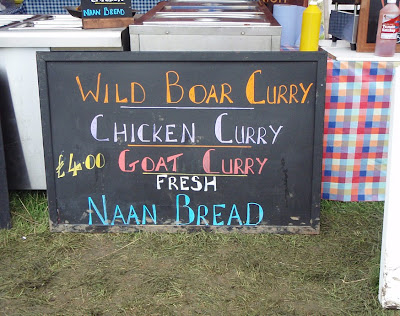 Naan Bread
Wild Boar Curry
Chicken Curry
£4.00 Goat Curry
FRESH
Naan Bread